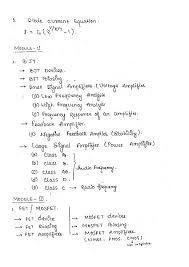 5. Diode Current Equation
I = I₀(e^V/ηVT - 1)
Module-II
1. BJT.
→ BJT Device.
→ BJT Biasing.
→ Small Signal Amplifiers (Voltage Amplifier)
(a) Low Frequency Analysis
(b) High Frequency Analysis
(c) Frequency Response of an Amplifier.
→ Feedback Amplifier.
(a) Negative Feedback Amplifier (Stability).
→ Large Signal Amplifier (Power Amplifier)
(a) Class A.
(b) Class B.
(c) Class D.
(d) Class C → Radio Frequency
Audio Frequency.
Module-III
1. FET / MOSFET.
→ FET device → MOSFET device
→ FET Biasing → MOSFET Biasing
→ FET Amplifier → MOSFET Amplifier
(NMOS, PMOS, CMOS)